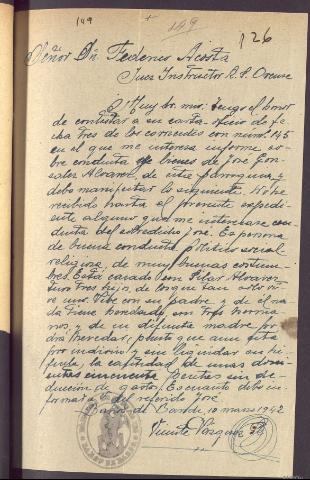 149
149
126
Señor Dn. Federico Acosta
Juez Instructor R.P. Orense
Muy Sr. mio: Tengo el honor
de contestar a su carta-oficio de fe-
cha tres de los corrientes con núm. 145
en el que me interesa informe so-
bre conducta y bienes de José Gon-
zales Alvarez, de esta parroquia, y
debo manifestar lo siguiente. No he
recibido hasta el presente expedi-
ente alguno que me interesase con-
ducta del José. Es persona
de buena conducta político-social-
religiosa, de muy buenas costum-
bres. Está casado con Pilar Alvarez
tuvo tres hijos, de los que tan solo vi-
ve uno. Vive con su padre y de él na-
da tiene heredado, con tres herma-
nos, y de su difunta madre po-
drá heredar, puesto que aun está
proindiviso y sin liquidar su hi-
juela, la cantidad de unas dosci-
entas cincuenta pesetas sin de-
ducción de gastos. Es cuanto debo in-
formar del referido José
de Bande, 10 marzo 1942
Vicente Vázquez